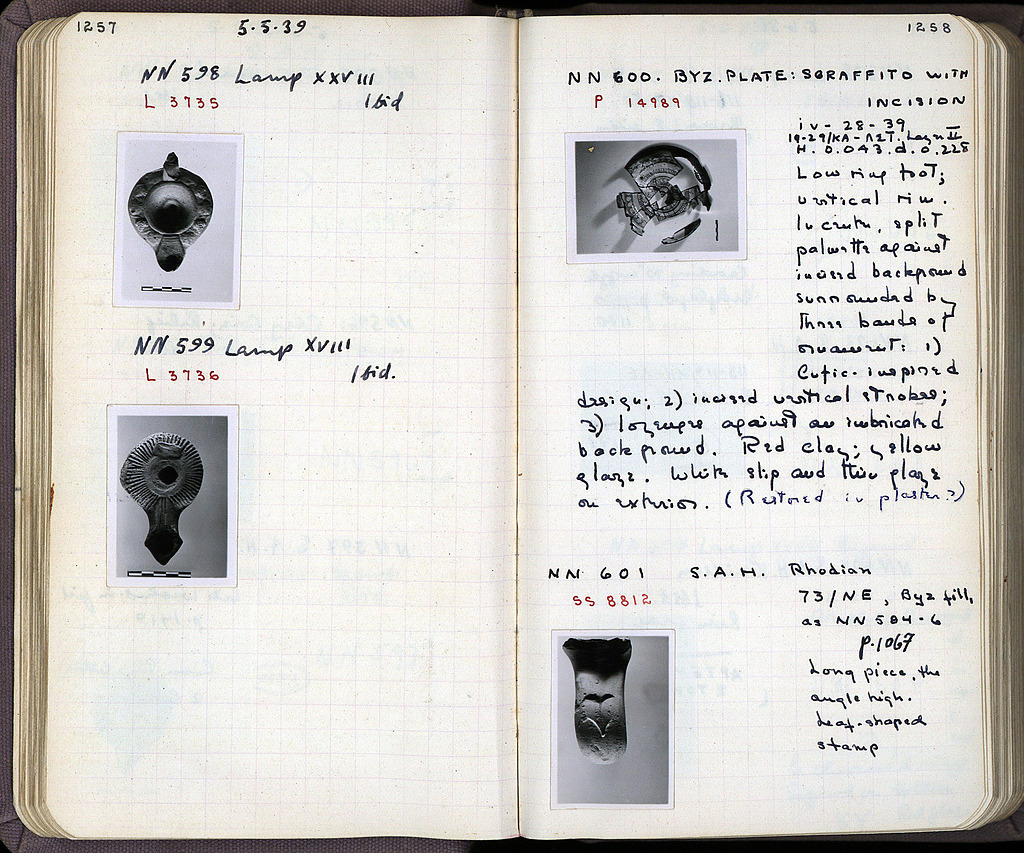 1257
5.5.39
NN 598 Lamp XXVIII
L 3735
Ibid
NN 599 Lamp XVIII
L 3736
Ibid.
1258
NN 600. BYZ. PLATE: SGRAFFITO WITH
P 14989
INCISION
iv - 28 - 39
19-29/KA - ΛΣΤ. Layer II
H. 0.043. d. 0.228
Low ring foot;
vertical rim.
In center, split
palmette against
incised background
surrounded by
three bands of
ornament: 1)
Cufic-inspired
design; 2) incised vertical strokes;
3) lozenges against an imbricated
background. Red clay; yellow
glaze. White slip and thin glaze
on exterior. (Restored in plaster?)
NN 601 S.A.H. Rhodian
SS 8812
73/NE, Byz fill,
as NN 584-6
p.1067
Long piece, the
angle high.
Leaf-shaped
stamp